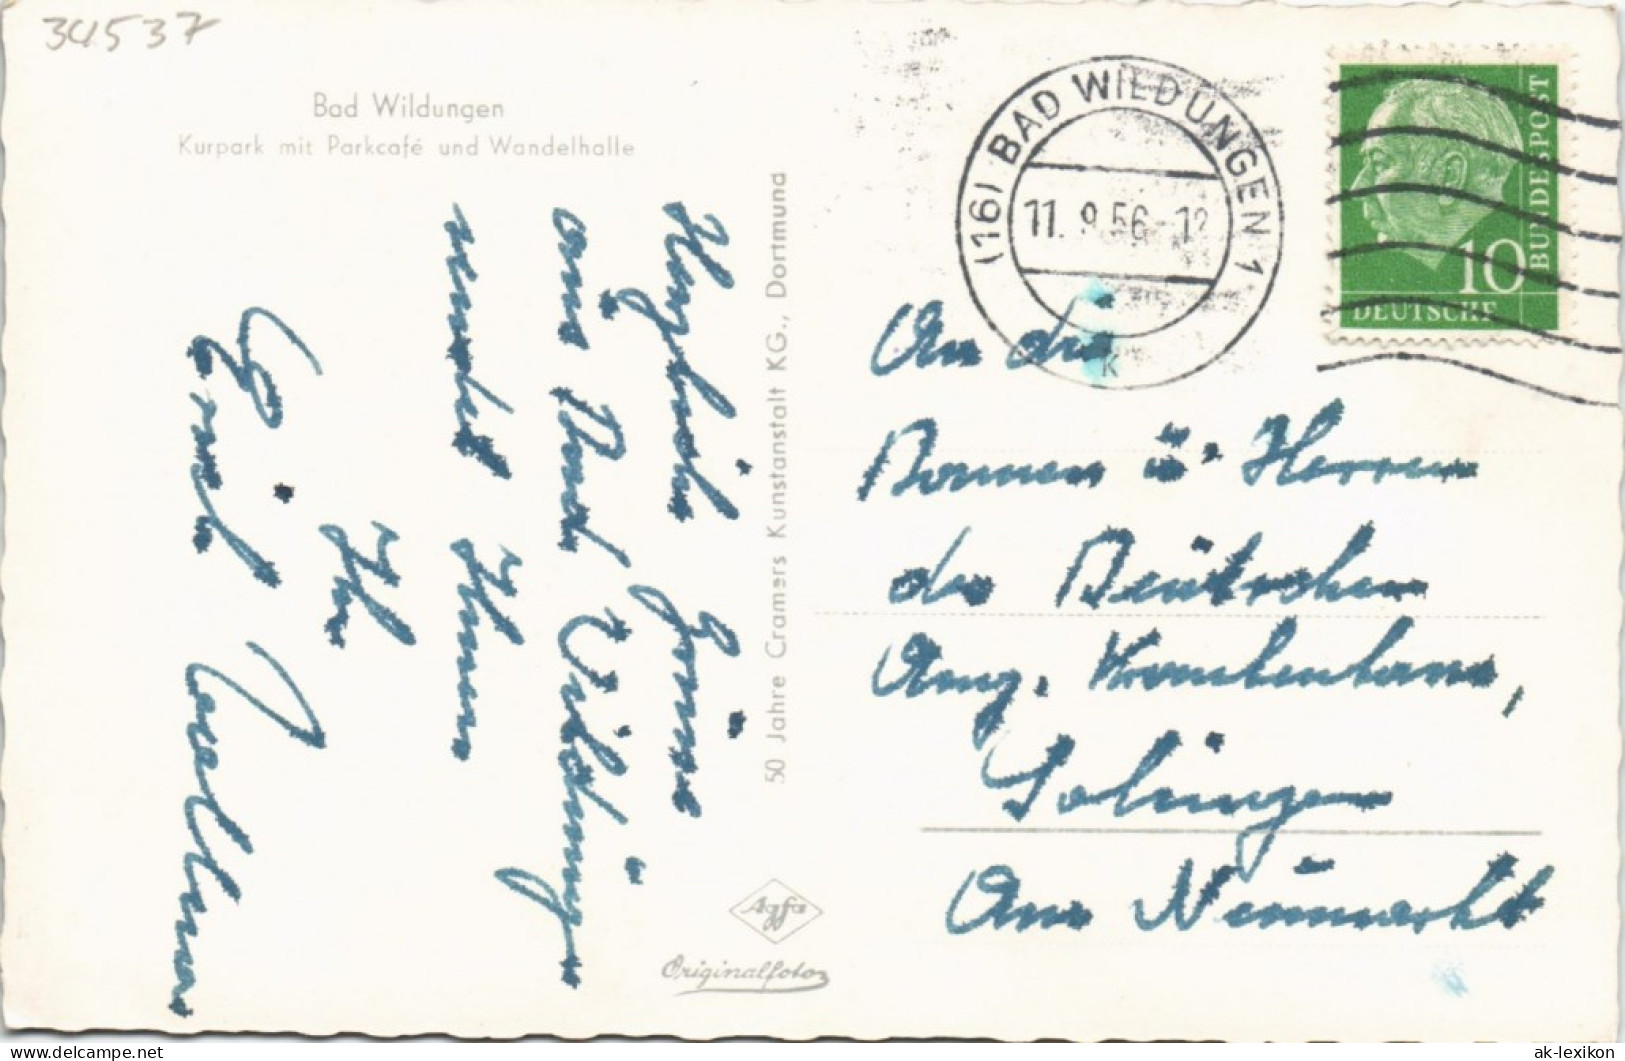 34537
Bad Wildungen
Kurpark mit Parkcafé und Wandelhalle
Herzliche Grüße
aus Bad Wildungen
sendet Ihnen
Ihr
Erich
50 Jahre Cramers Kunstanstalt KG., Dortmund
Agfa
Originalfoto
(16) BAD WILDUNGEN 1
11. 9. 56-12
k
10
DEUTSCHE
BUNDESPOST
An die
Damen ü. Herren
der Deütschen
Ang. Krankenkasse,
Solingen
Am Neümarkt
ak-lexikon